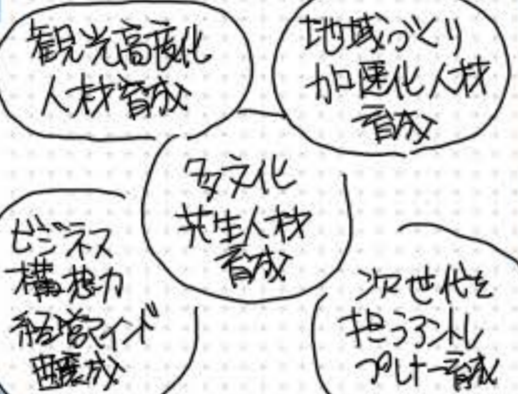 観光高度化
人材育成
地域づくり
加速化人材
育成
多文化
共生人材
育成
ビジネス
構想力
経営マインド
醸成
次世代を
担うアントレ
プレナー育成